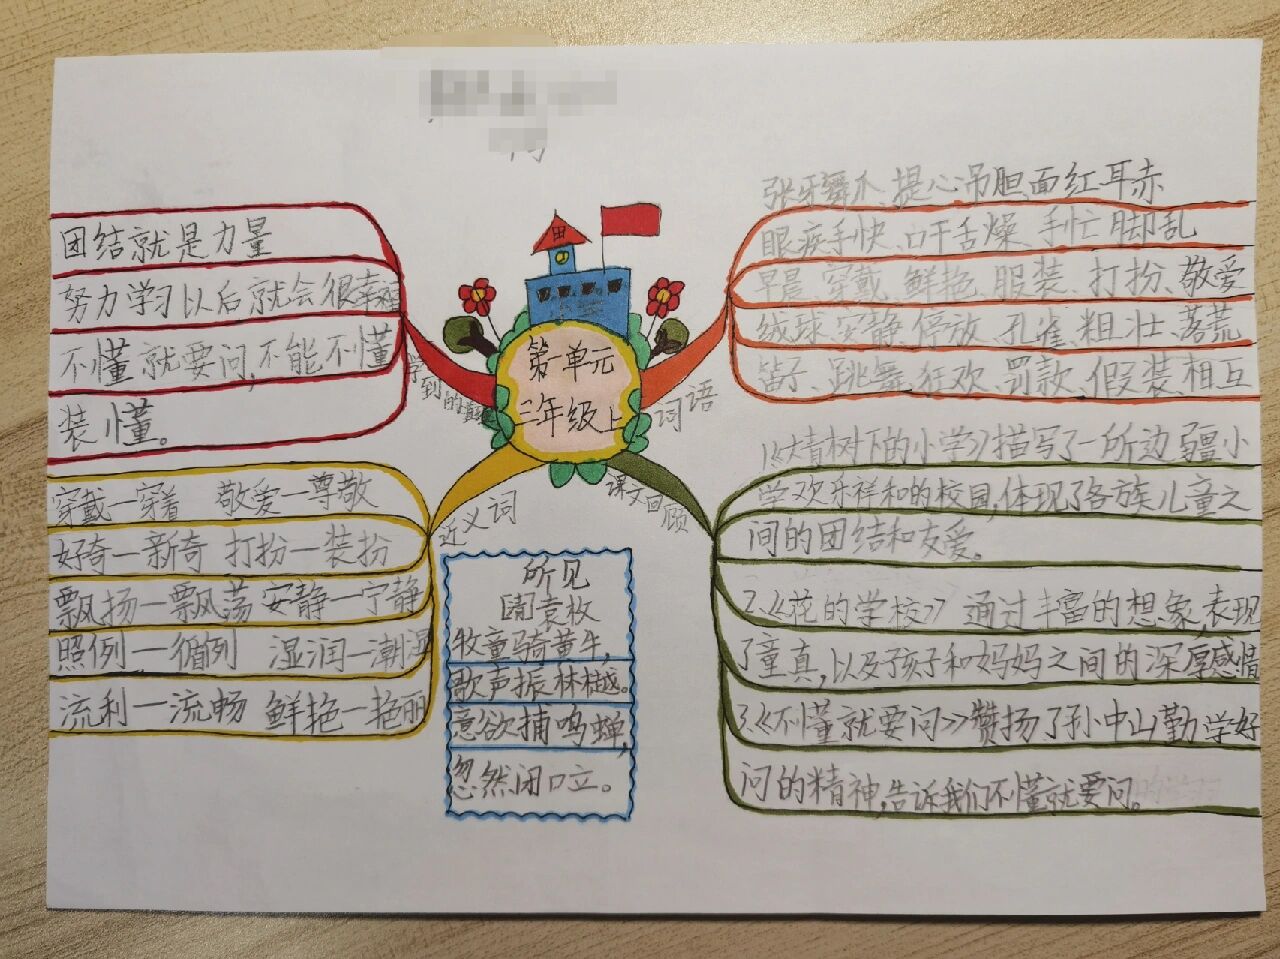 张牙舞爪、提心吊胆、面红耳赤
眼疾手快、口干舌燥、手忙脚乱
早晨、穿戴、鲜艳、服装、打扮、敬爱
绒球、安静、停放、孔雀、粗壮、落荒
笛子、跳舞、狂欢、罚款、假装、相互
词语
团结就是力量
努力学习以后就会很幸福
不懂就要问,不能不懂
装懂。
学到的
第一单元
三年级上
穿戴—穿着 敬爱—尊敬
好奇—新奇 打扮—装扮
飘扬—飘荡 安静—宁静
照例—循例 湿润—潮湿
流利—流畅 鲜艳—艳丽
近义词
所见
[清]袁枚
牧童骑黄牛,
歌声振林樾。
意欲捕鸣蝉,
忽然闭口立。
课文回顾
1《大青树下的小学》描写了一所边疆小
学欢乐祥和的校园,体现了各族儿童之
间的团结和友爱。
2.《花的学校》通过丰富的想象,表现
了童真,以及孩子和妈妈之间的深厚感情
3.《不懂就要问》赞扬了孙中山勤学好
问的精神,告诉我们不懂就要问。